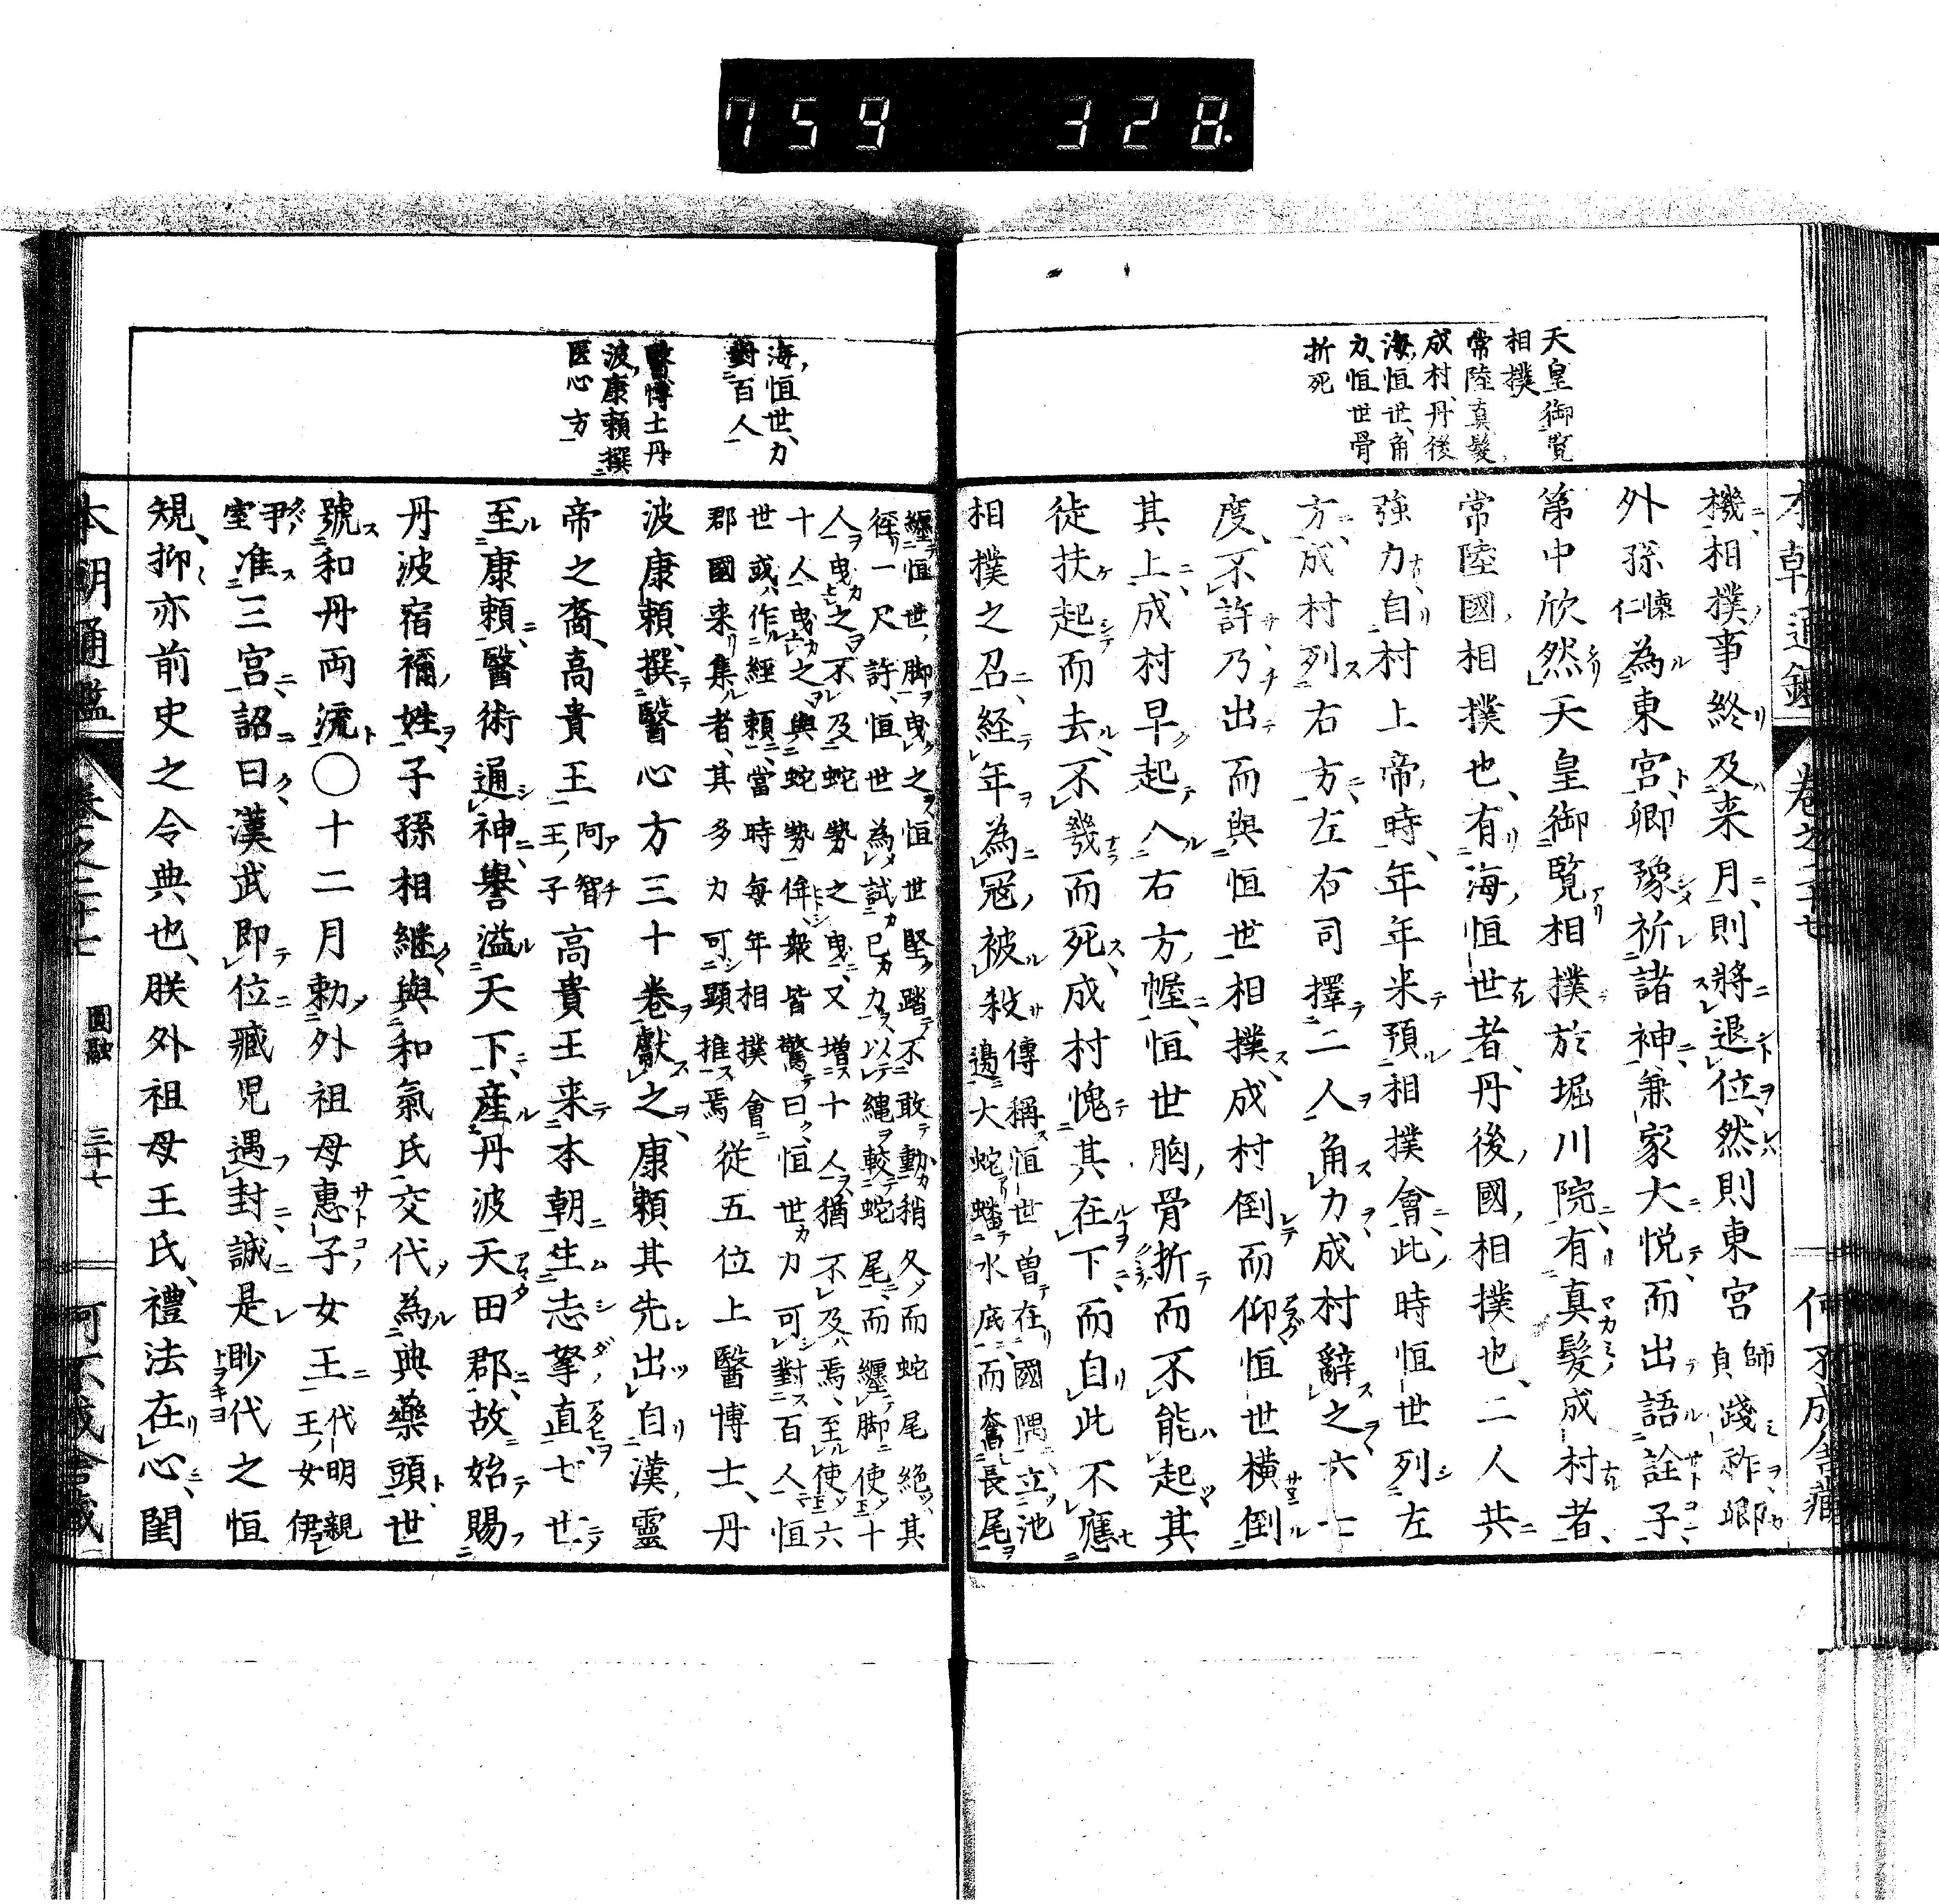 759 328
本朝通鑑 卷之二十七 何不成舍藏
天皇御覧
相撲
常陸真髮
成村丹後
海恒世角
力恒世骨
折死
機相撲事終及来月則將退位然則東宮師貞踐祚卿
外孫懷仁為東宮卿豫祈諸神兼家大悦而出語詮子
第中欣然天皇御覧相撲於堀川院有真髮成村者
常陸國相撲也有海恒世者丹後國相撲也二人共
強力自村上帝時年年来預相撲會此時恒世列左
方成村列右方左右司擇二人角力成村辭之六七
度不許乃出而與恒世相撲成村倒而仰恒世横倒
其上成村早起入右方幄恒世胸骨折而不能起其
徒扶起而去不幾而死成村愧其在下而自此不應
相撲之召経年為冦被殺傳稱恒世曽在國隅立池
邉大蛇蟠水底而奮長尾
海恒世力
對百人
醫博士丹
波康頼撰
医心方
纏恒世脚曳之恒世堅踏不敢動稍久而蛇尾絶其
徑一尺許恒世為試已力以縄較蛇尾而纏脚使十
人曳之不及蛇勢之曳又増十人猶不及焉至使六
十人曳之與蛇勢侔衆皆驚曰恒世力可對百人恒
世或作經頼當時毎年相撲會
郡國来集者其多力可顕推焉従五位上醫博士丹
波康頼撰醫心方三十卷獻之康頼其先出自漢靈
帝之裔高貴王阿智王子高貴王来本朝生志拏直七世
至康頼醫術通神譽溢天下産丹波天田郡故始賜
丹波宿禰姓子孫相継與和氣氏交代為典藥頭世
號和丹両流〇十二月勅外祖母惠子女王代明親王女伊
尹室准三宮詔曰漢武即位臧児遇封誠是眇代之恒
規抑亦前史之令典也朕外祖母王氏禮法在心閨
本朝通鑑 卷之二十七 圓融 三十七 何不成舍藏